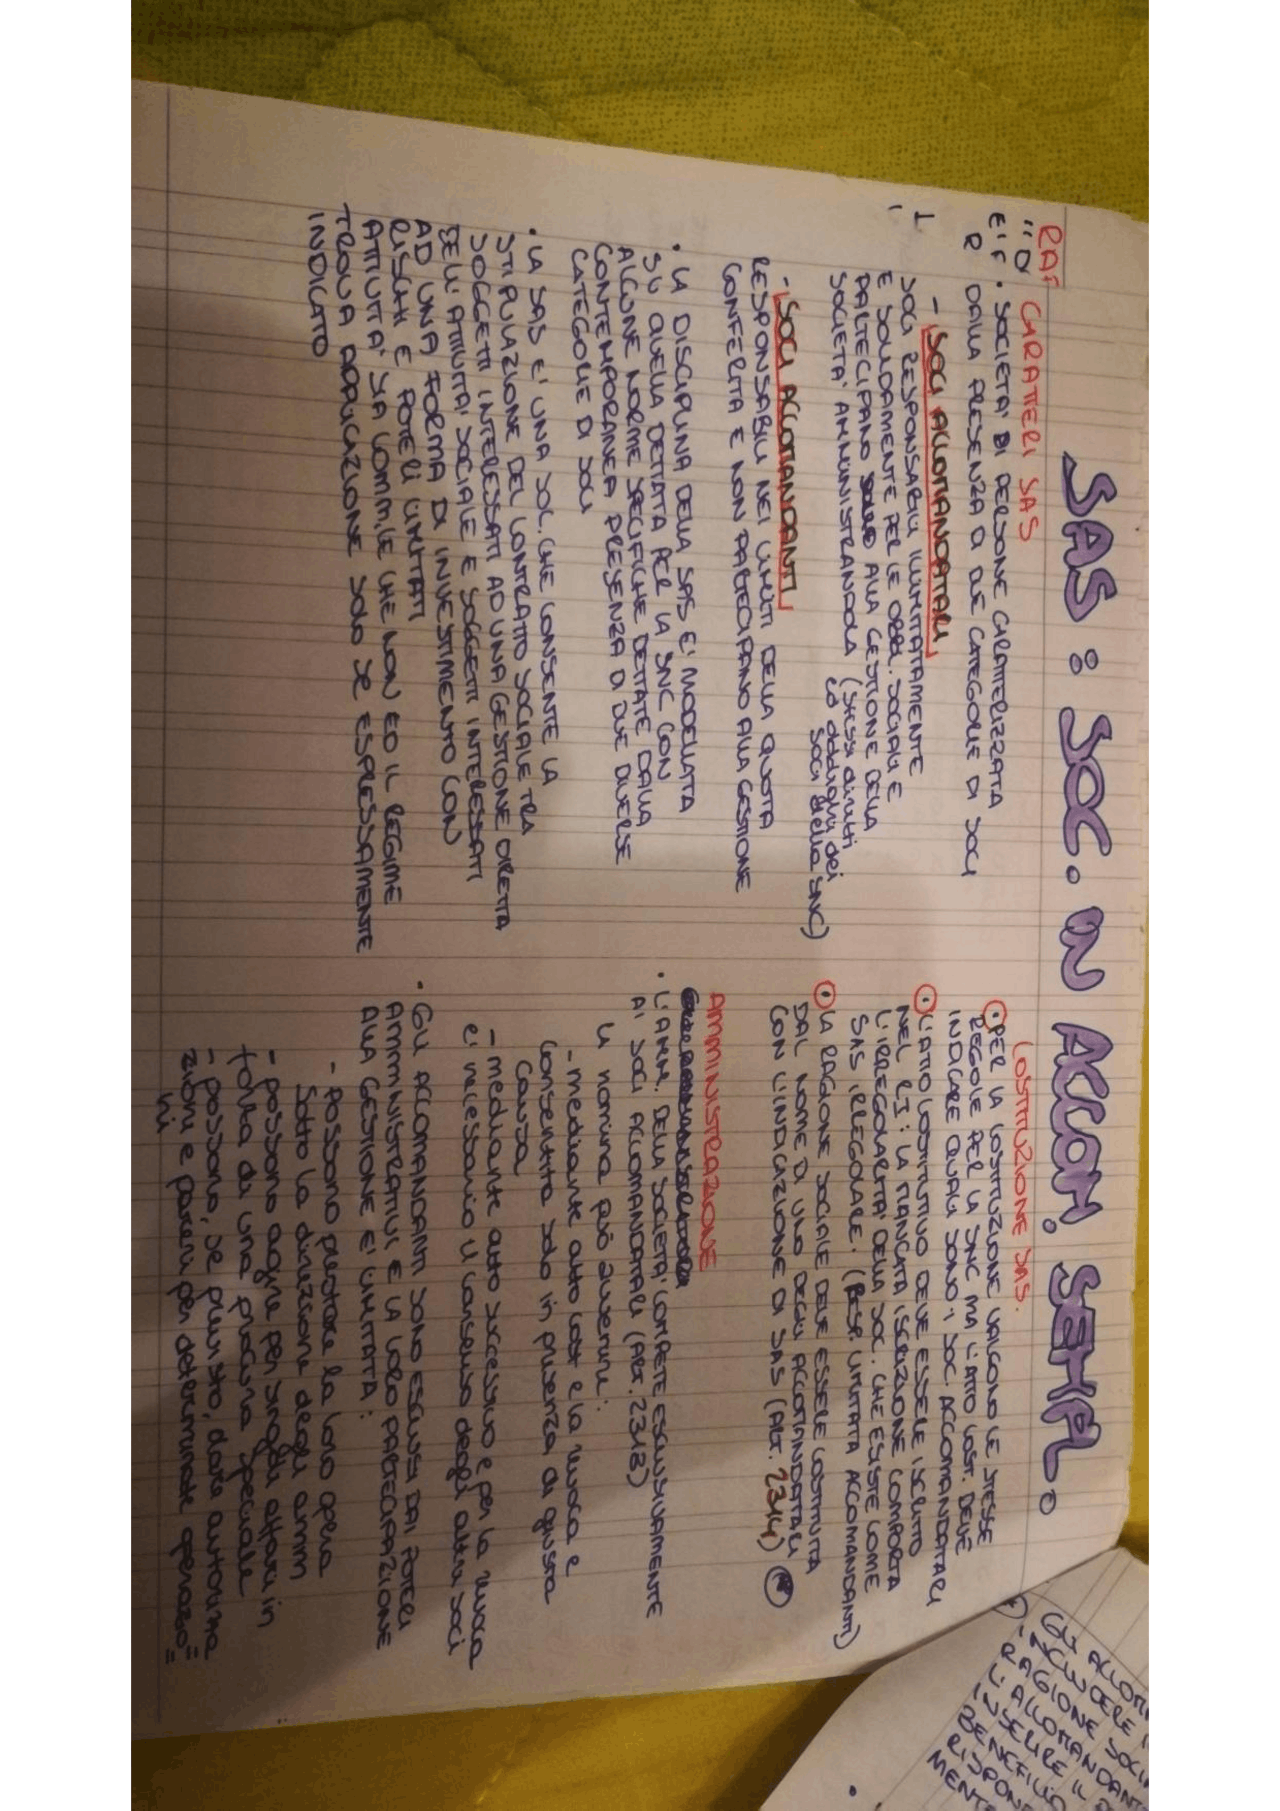 SAS: SOC. IN ACCOM. SEMPL.
CARATTERI SAS
• SOCIETA' DI PERSONE CARATTERIZZATA
DALLA PRESENZA DI DUE CATEGORIE DI SOCI
- SOCI ACCOMANDATARI
SOCI RESPONSABILI ILLIMITATAMENTE
E SOLIDAMENTE PER LE OBBL. SOCIALI E
PARTECIPANO ALLA GESTIONE DELLA
SOCIETA' AMMINISTRANDOLA (stessi diritti
ed obblighi dei
soci della SNC)
- SOCI ACCOMANDANTI
RESPONSABILI NEI LIMITI DELLA QUOTA
CONFERITA E NON PARTECIPANO ALLA GESTIONE
• LA DISCIPLINA DELLA SAS E' MODELLATA
SU QUELLA DETTATA PER LA SNC CON
ALCUNE NORME SPECIFICHE DETTATE DALLA
CONTEMPORANEA PRESENZA DI DUE DIVERSE
CATEGORIE DI SOCI
• LA SAS E' UNA SOC. CHE CONSENTE LA
STIPULAZIONE DEL CONTRATTO SOCIALE TRA
SOGGETTI INTERESSATI AD UNA GESTIONE DIRETTA
DELL'ATTIVITA' SOCIALE E SOGGETTI INTERESSATI
AD UNA FORMA DI INVESTIMENTO CON
RISCHI E POTERI LIMITATI
ATTIVITA' SIA COMM.LE CHE NON ED IL REGIME
TROVA APPLICAZIONE SOLO SE ESPRESSAMENTE
INDICATO
COSTITUZIONE SAS.
• PER LA COSTITUZIONE VALGONO LE STESSE
REGOLE PER LA SNC MA L'ATTO COST. DEVE
INDICARE QUALI SONO I SOC. ACCOMANDATARI
• L'ATTO COSTITUTIVO DEVE ESSERE ISCRITTO
NEL RI: LA MANCATA ISCRIZIONE COMPORTA
L'IRREGOLARITA' DELLA SOC. CHE ESISTE COME
SAS IRREGOLARE. (RESP. LIMITATA ACCOMANDANTI)
• LA RAGIONE SOCIALE DEVE ESSERE COSTITUITA
DAL NOME DI UNO DEGLI ACCOMANDATARI
CON L'INDICAZIONE DI SAS (ART. 2314)
AMMINISTRAZIONE
• L'AMM. DELLA SOCIETA' COMPETE ESCLUSIVAMENTE
AI SOCI ACCOMANDATARI (ART. 2318)
La nomina può avvenire:
- mediante atto cost e la revoca e
consentita solo in presenza di giusta
causa
- mediante atto successivo e per la revoca
e' necessario il consenso degli altri soci
• GLI ACCOMANDANTI SONO ESCLUSI DAI POTERI
AMMINISTRATIVI E LA LORO PARTECIPAZIONE
ALLA GESTIONE E' LIMITATA:
- possono prestare la loro opera
sotto la direzione degli amm
- possono agire per singoli affari in
forza di una procura speciale
- possono, se previsto, dare autorizza
zioni e pareri per determinate operazio=
ni
RAG
GLI ACCOM
RAGIONE SOCI
L'ACCOMANDANT
INSERIRE IL
BENEFICIO
RISPON
MENTE